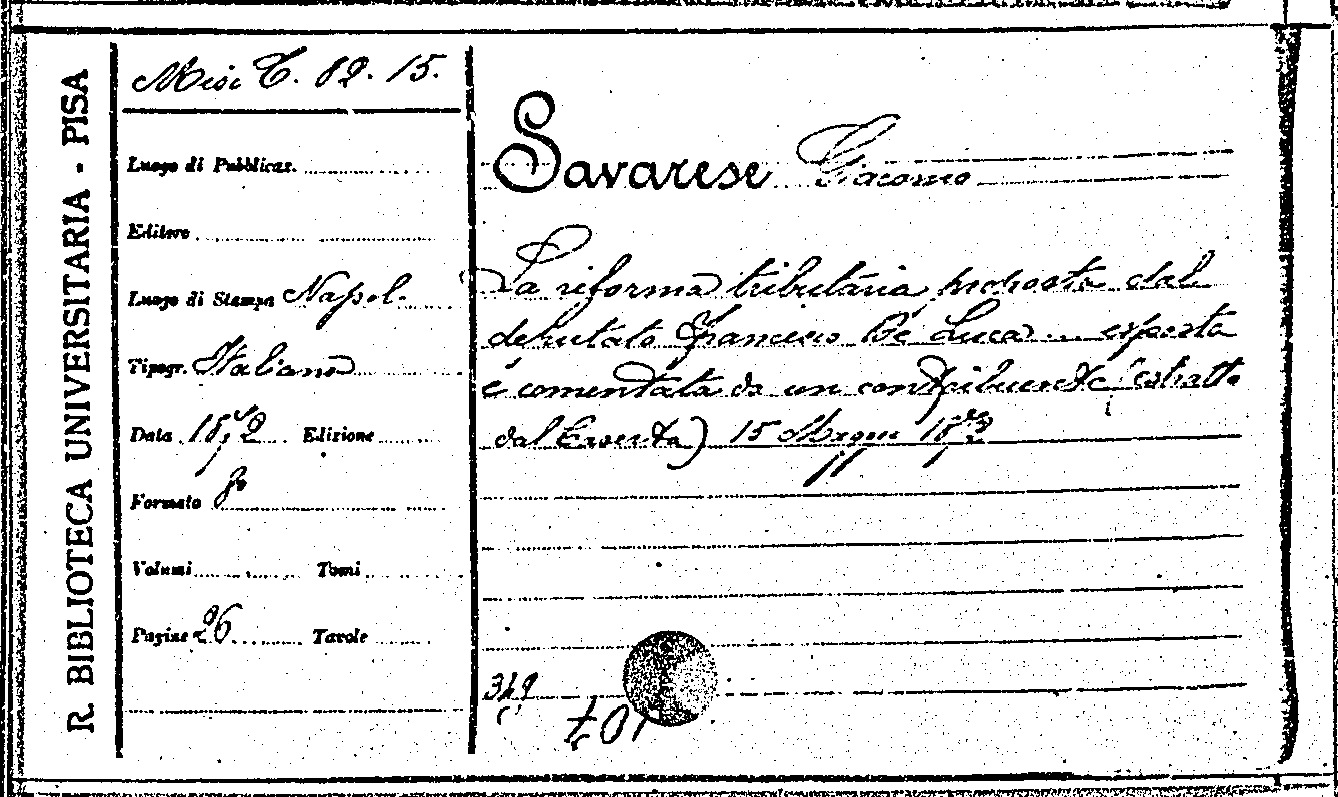 R. BIBLIOTECA UNIVERSITARIA - PISA
Misc C. 82. 15.
Luogo di Pubblicaz.
Editore
Luogo di Stampa Napol.
Tipogr. Italiana
Data 1872 Edizione
Formato 8°
Volumi Tomi
Pagine 26 Tavole
Savarese Giacomo
La riforma tributaria proposta dal
deputato Francesco De Luca ... esposta
e comentata da un contribuente (estratto
dal ) 15 1872
349